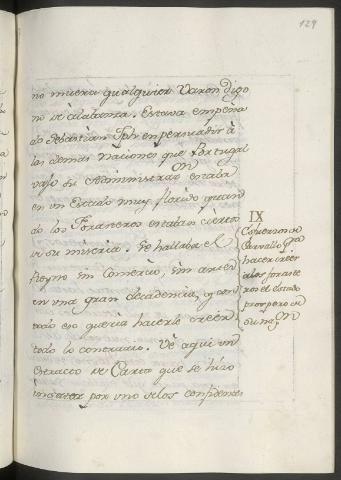 129
no muera qualquier Varon digo
no de alabanza. Estava empeña
do Sebastian Jph en persuadir à
las demas Naciones que Portugal
vajo su Administrazon estaba
en un Estado muy florido quan
do los Foraneros estaban ciertos
de su miseria. Se hallaba el
Reyno sin Comercio, sin
en una gran decadencia, y con
todo eso queria hacerle creer
todo lo contrario. Vè aqui un
Extracto de Carta que se hizo
por uno de los confidentes
IX
Esfuerzos de
Carvallo para
hacer creer
a los foraste
ros el estado
prospero de
su